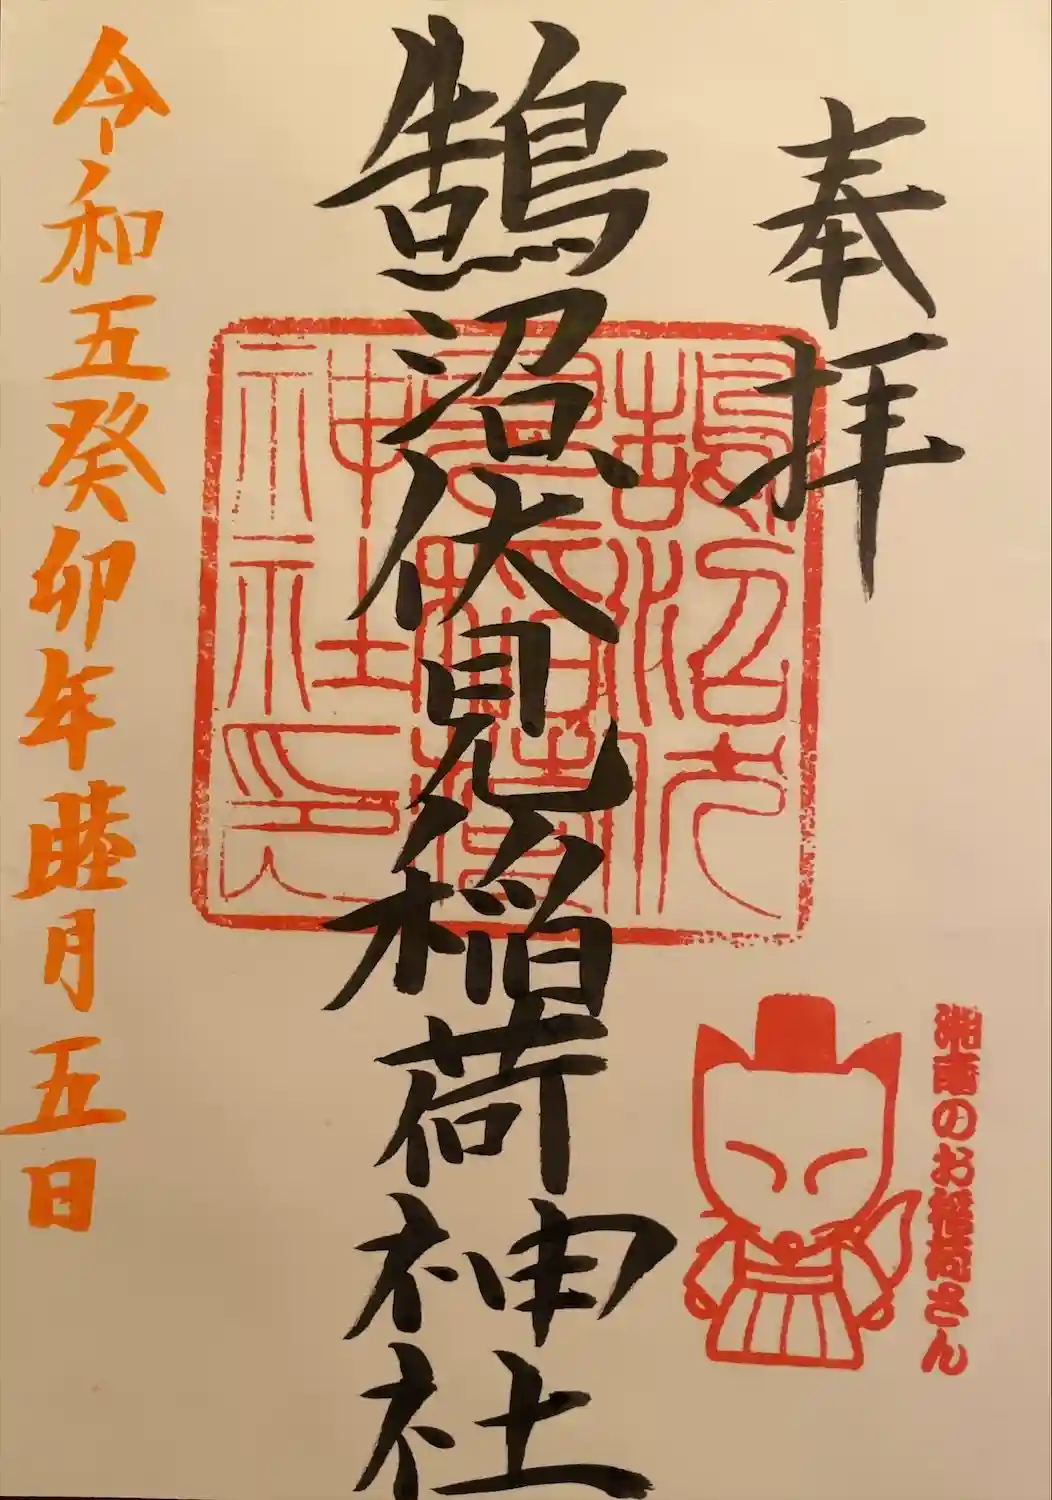 奉拝
鵠沼伏見稲荷神社
鵠沼伏
見稲荷
神社印
令和五癸卯年睦月五日
湘南のお稲荷さん